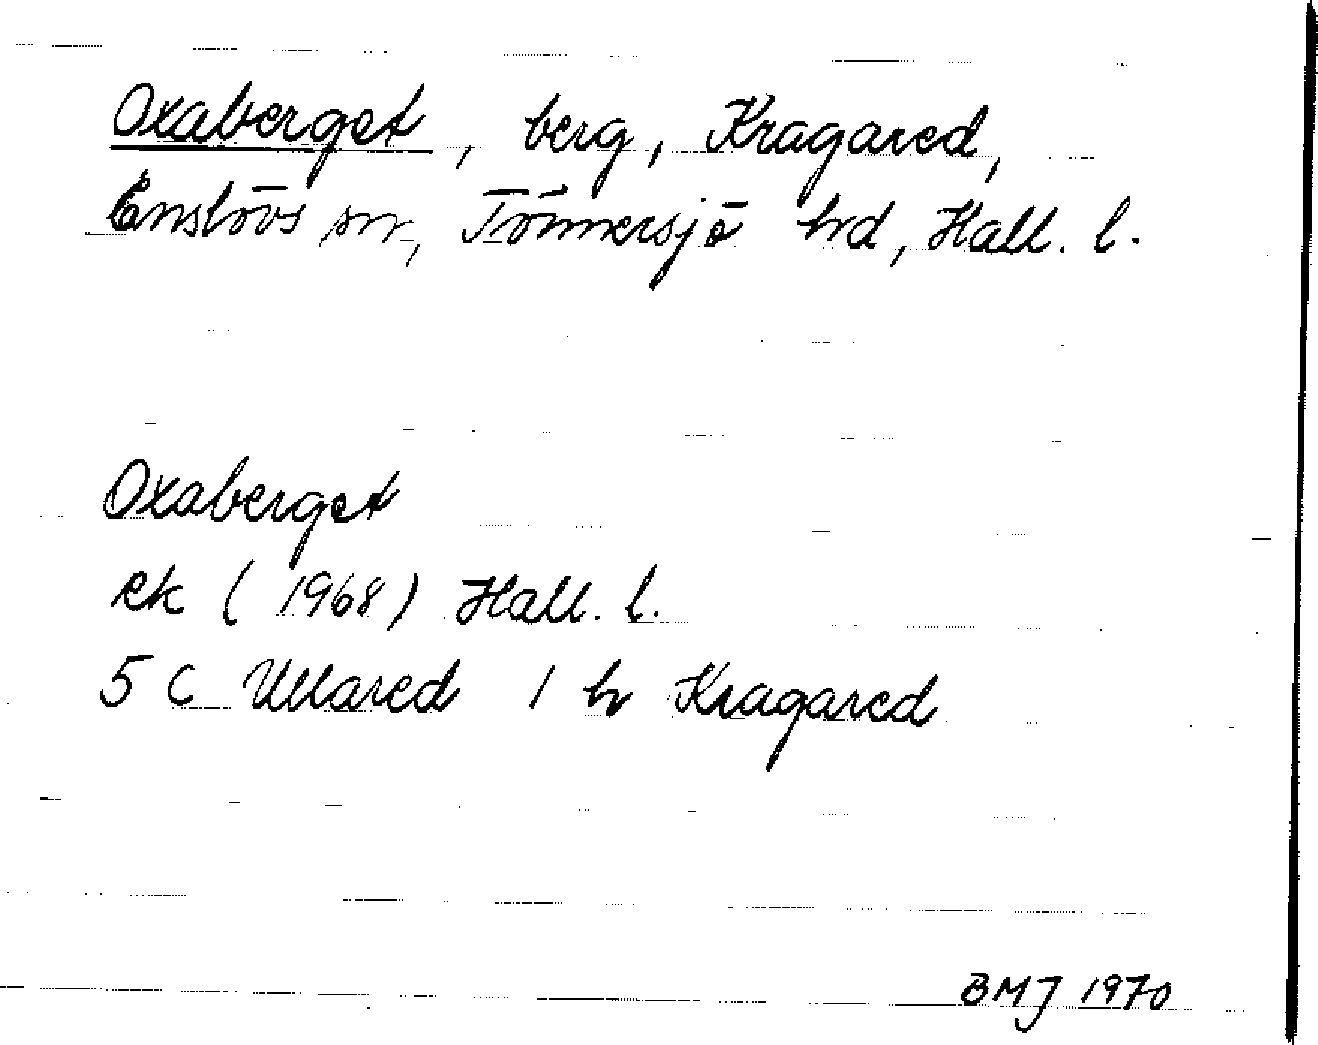 Oxaberget, berg, Kragared,
Enslövs sn, Tönnersjö hd, Hall. l.
Oxaberget
ek (1968) Hall. l.
5 C Ullared 1 h Kragared
BMJ 1970